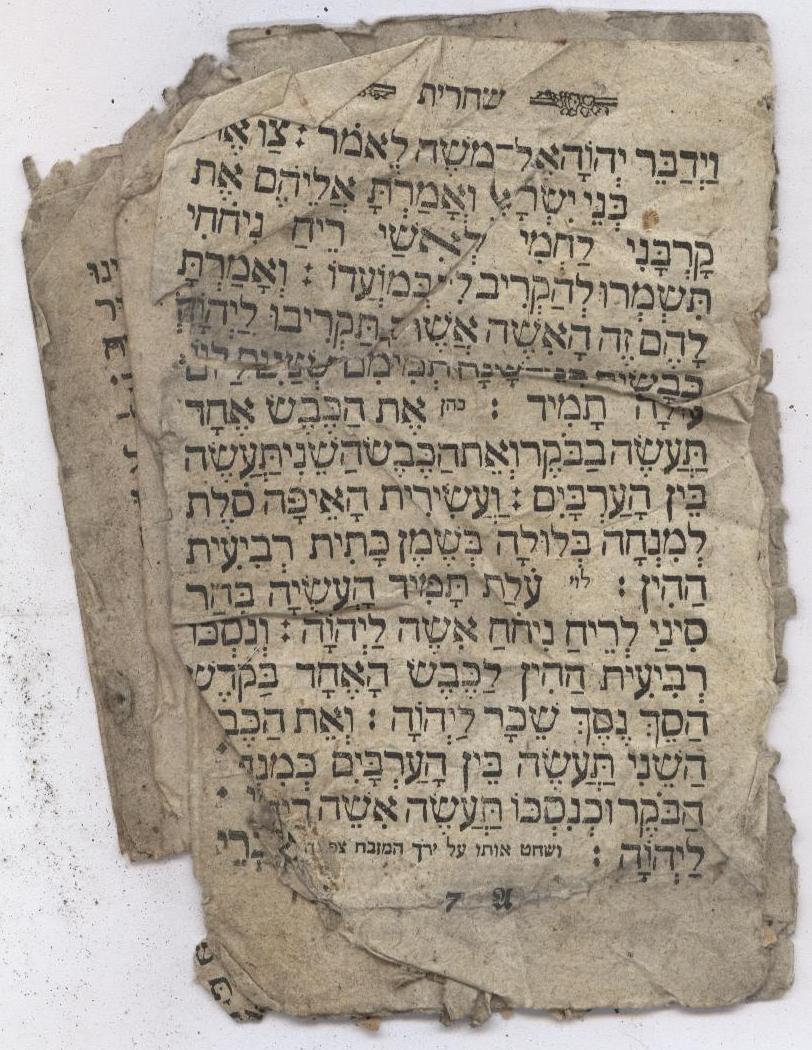 שחרית
וַיְדַבֵּר יְהוָֹה אֶל־מֹשֶׁה לֵּאמֹר : צַו
בְּנֵי וְאָמַרְתָּ אֲלֵיהֶם אֶת
קָרְבָּנִי לַחְמִי לְאִשַּׁי רֵיחַ נִיחֹחִי
תִּשְׁמְרוּ לְהַקְרִיב בְּמוֹעֲדוֹ : וְאָמַרְתָּ
לָהֶם זֶה הָאִשֶּׁה אֲשֶׁר תַּקְרִיבוּ לַיהוָֹה
כְּבָשִׂים בְּנֵי־שָׁנָה תְמִימִם שְׁנַיִם
עֹלָה תָמִיד : כהן אֶת הַכֶּבֶשׂ אֶחָד
תַּעֲשֶׂה בַבֹּקֶר וְאֵת הַכֶּבֶשׂ הַשֵּׁנִי תַּעֲשֶׂה
בֵּין הָעַרְבָּיִם : וַעֲשִׂירִית הָאֵיפָה סֹלֶת
לְמִנְחָה בְּלוּלָה בְּשֶׁמֶן כָּתִית רְבִיעִית
הַהִין : לוי עֹלַת תָּמִיד הָעֲשֻׂיָה בְּהַר
סִינַי לְרֵיחַ נִיחֹחַ אִשֶּׁה לַיהוָֹה : וְנִסְכּוֹ
רְבִיעִית הַהִין לַכֶּבֶשׂ הָאֶחָד בַּקֹּדֶשׁ
הַסֵּךְ נֶסֶךְ שֵׁכָר לַיְהוָֹה : וְאֵת
הַשֵּׁנִי תַּעֲשֶׂה בֵּין הָעַרְבָּיִם
הַבֹּקֶר וּכְנִסְכּוֹ תַּעֲשֶׂה אִשֵּׁה
לַיְהוָֹה : ושחט אותו על ירך המזבח
7 A